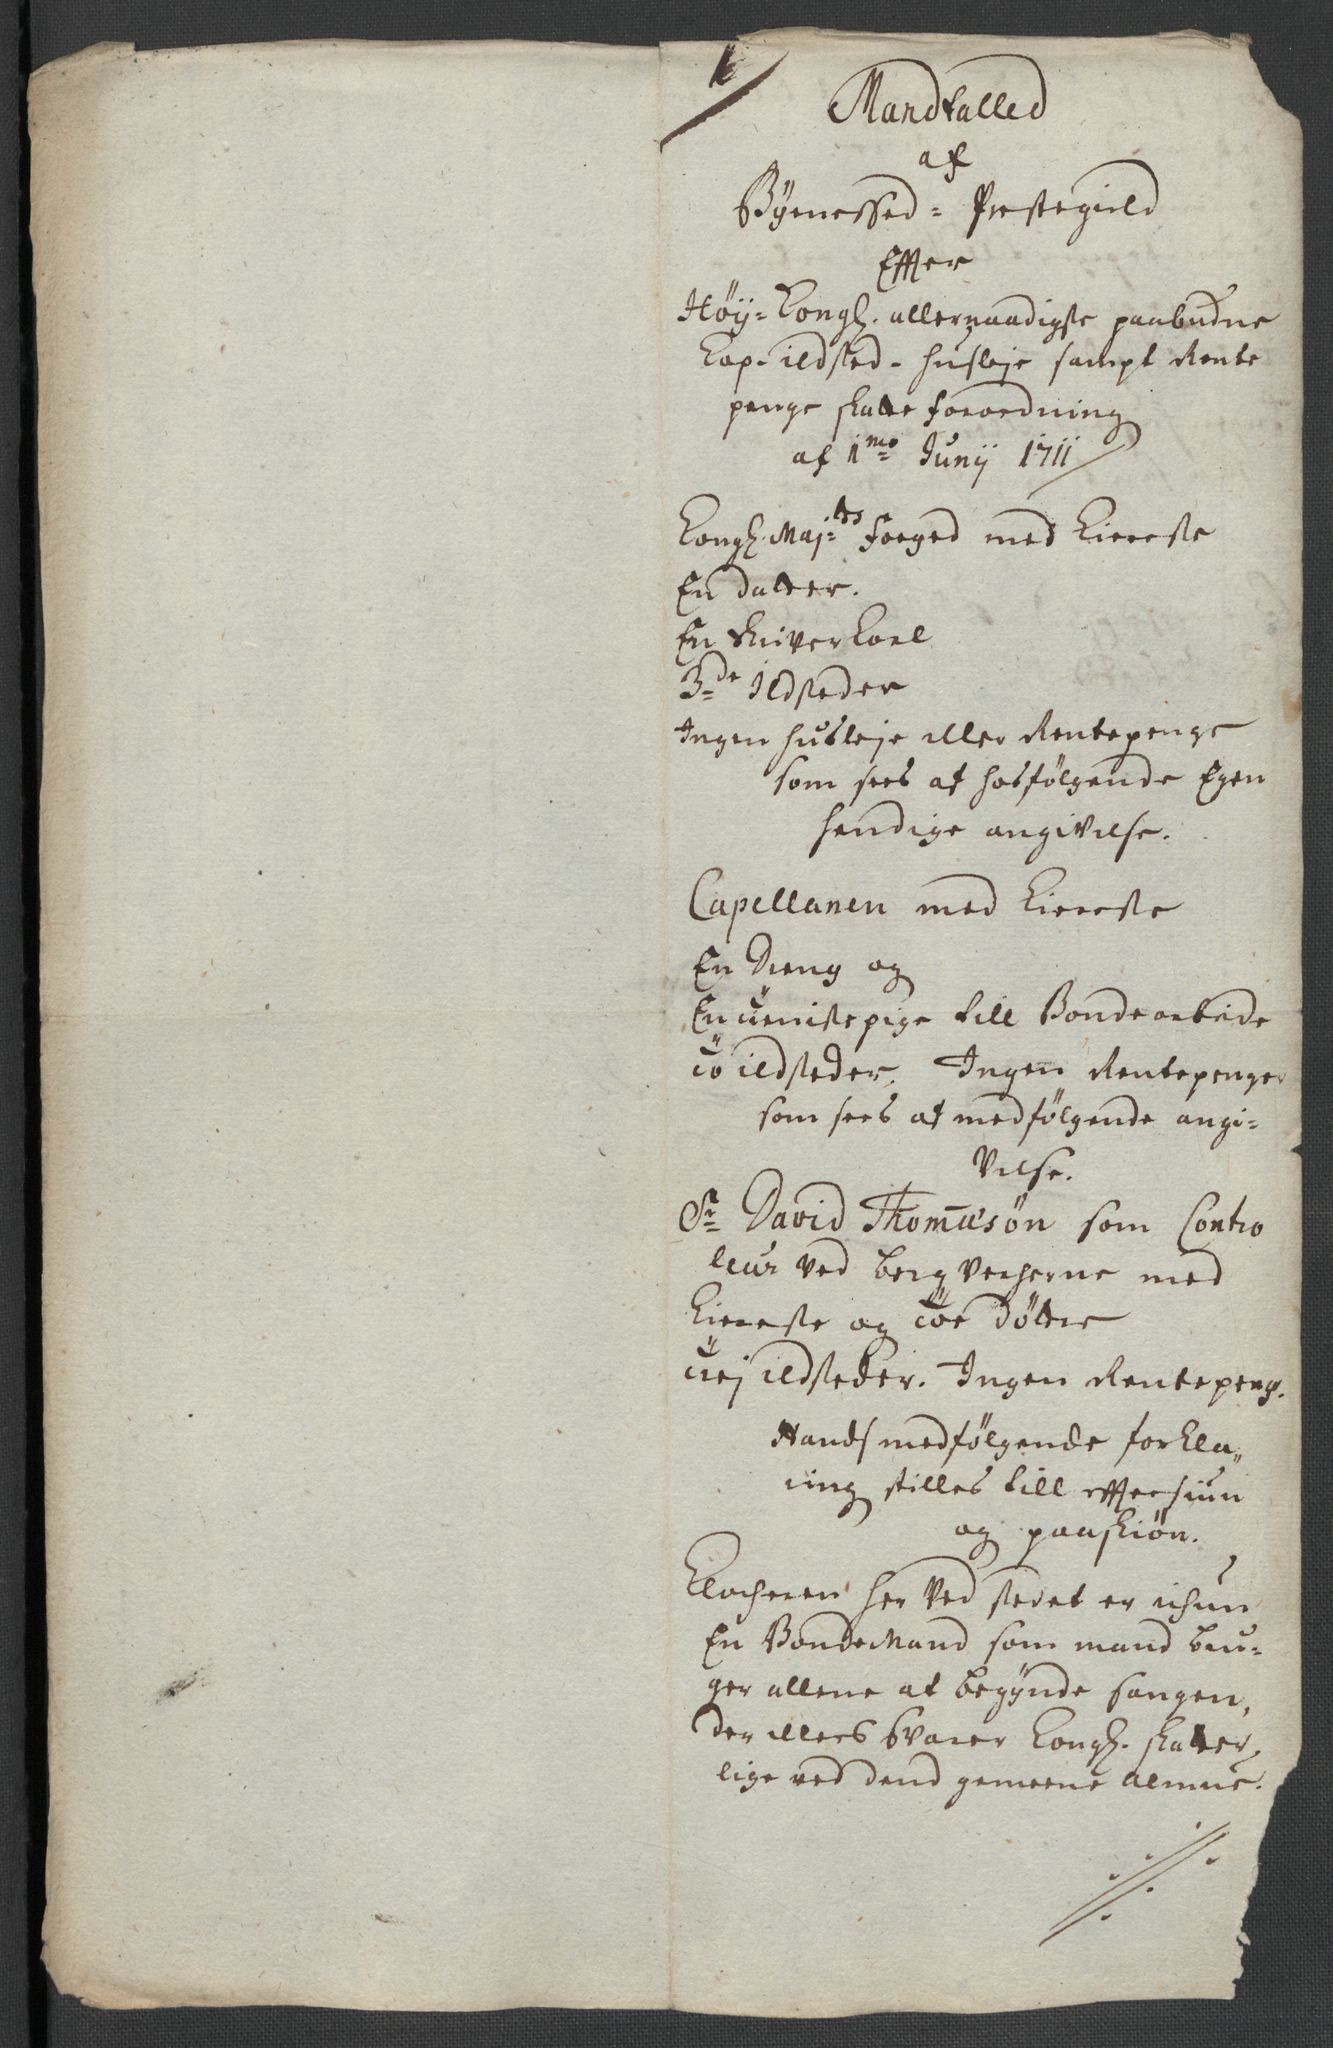 1
Mandtalled
af
Byenessed = Prestegield
Effter
Høy= Kongl. allernaadigste paabudne
Kop- ildsted- husleje sampt Rente
penge skatte forordning
af 1mo Junij 1711
Kongl. Maj:ts foeged med Kiereste
En datter.
En skriver Karl
3de Ildsteder
Ingen husleje eller Rentepenge
som sees af hosfølgende Egen
hendige angivelse.
Capellanen med Kiereste
En Dreng og
En tienistepige till Bondearbeide
to ildsteder. Ingen Rentepenger
som sees af medfølgende angi=
velse.
Sr David Thomæsøn som Contro
leur ved bergverckerne med
Kiereste og toe døttre
trej ildsteder. Ingen Rentepeng.
Hands medfølgende forkla„
ring stilles till effersiun
og paaskiøn.
Klockeren her ved stedet er ickun
En Bondemand som mand bru=
ger allene at begynde sangen,
der ellers svarer Kongl. skatter,
lige ved dend gemeene almue.